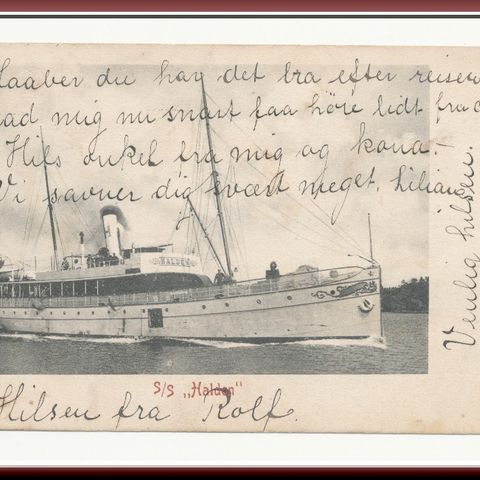 Haaber du har det bra efter reisen
lad mig nu snart faa höre lidt fra d
Hils onkel fra mig og kona.
Vi savner dig svært meget, liliam
Venlig hilsen.
HALDEN
S/S „Halden"
Hilsen fra Rolf.